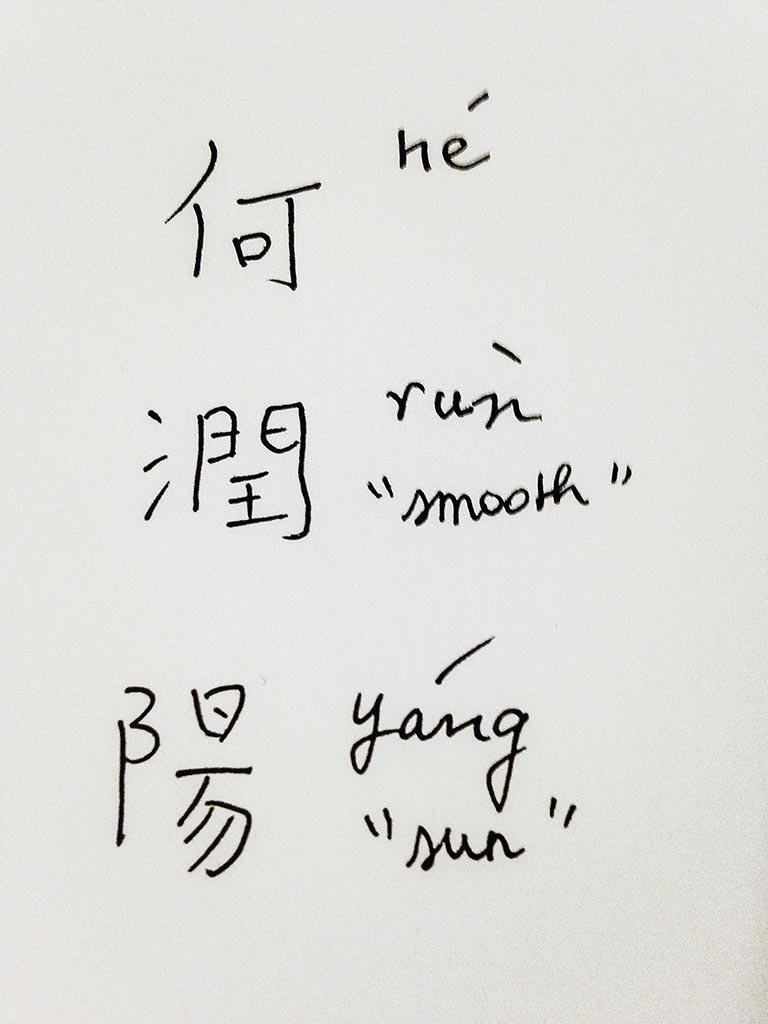 何 hé
潤 rùn
"smooth"
陽 yáng
"sun"